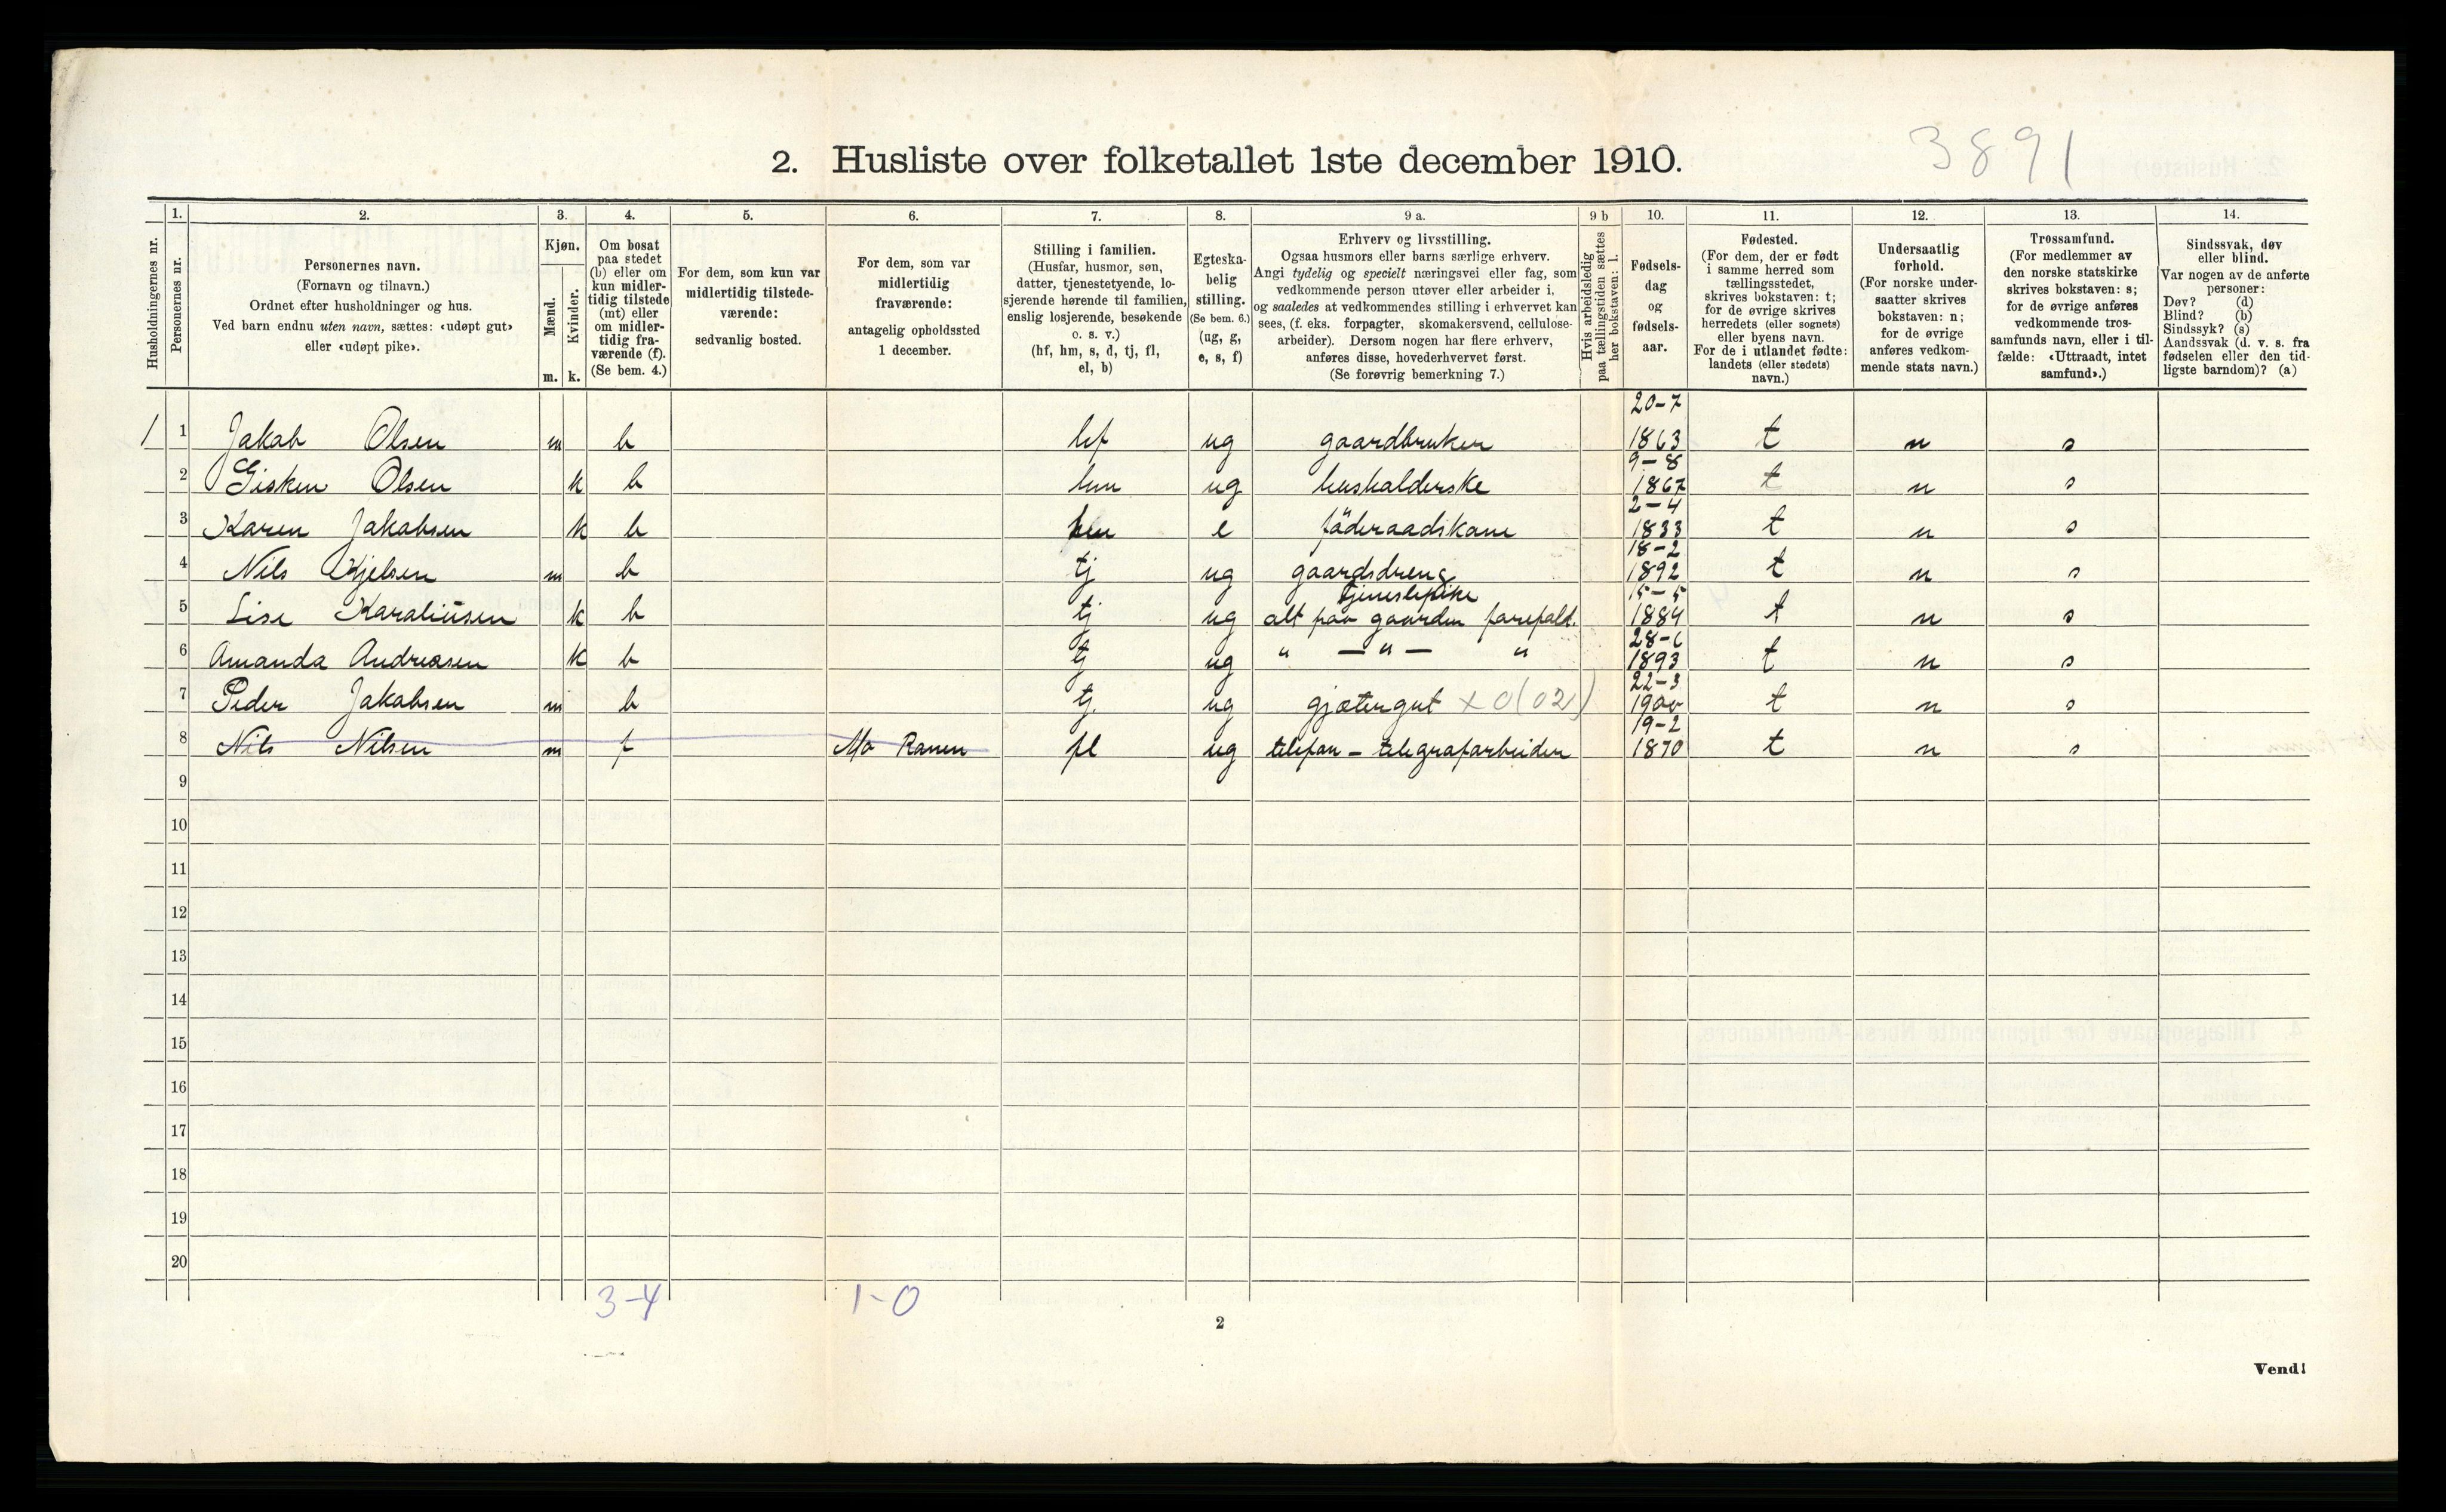 3891
2. Husliste over folketallet 1ste december 1910.
Husholdningernes nr.
1.
Personernes nr.
2.
Personernes navn.
(Fornavn og tilnavn.)
Ordnet efter husholdninger og hus.
Ved barn endnu uten navn, sættes: «udøpt gut»
eller «udøpt pike».
3.
Kjøn.
Mænd.
Kvinder.
m. k.
4.
Om bosat
paa stedet
(b) eller om
kun midler-
tidig tilstede
(mt) eller
om midler-
tidig fra-
værende (f).
(Se bem. 4.)
5.
For dem, som kun var
midlertidig tilstede-
værende:
sedvanlig bosted.
6.
For dem, som var
midlertidig
fraværende:
antagelig opholdssted
1 december.
7.
Stilling i familien.
(Husfar, husmor, søn,
datter, tjenestetyende, lo-
sjerende hørende til familien,
enslig losjerende, besøkende
o. s. v.)
(hf, hm, s, d, tj, fl,
el, b)
8.
Egteska-
belig
stilling.
(Se bem. 6.)
(ug, g,
e, s, f)
9 a.
Erhverv og livsstilling.
Ogsaa husmors eller barns særlige erhverv.
Angi tydelig og specielt næringsvei eller fag, som
vedkommende person utøver eller arbeider i,
og saaledes at vedkommendes stilling i erhvervet kan
sees, (f. eks. forpagter, skomakersvend, cellulose-
arbeider). Dersom nogen har flere erhverv,
anføres disse, hovederhvervet først.
(Se forøvrig bemerkning 7.)
9 b
Hvis arbeidsledig
paa tællingstiden sættes
her bokstaven: l.
10.
Fødsels-
dag
og
fødsels-
aar.
11.
Fødested.
(For dem, der er født
i samme herred som
tællingsstedet,
skrives bokstaven: t;
for de øvrige skrives
herredets (eller sognets)
eller byens navn.
For de i utlandet fødte:
landets (eller stedets)
navn.)
12.
Undersaatlig
forhold.
(For norske under-
saatter skrives
bokstaven: n;
for de øvrige
anføres vedkom-
mende stats navn.)
13.
Trossamfund.
(For medlemmer av
den norske statskirke
skrives bokstaven: s;
for de øvrige anføres
vedkommende tros-
samfunds navn, eller i til-
fælde: «Uttraadt, intet
samfund».)
14.
Sindssvak, døv
eller blind.
Var nogen av de anførte
personer:
Døv? (d)
Blind? (b)
Sindssyk? (s)
Aandssvak (d. v. s. fra
fødselen eller den tid-
ligste barndom)? (a)
1 1 Jakob Olsen m b hf ug gaardbruker 20-7 1863 t n s
2 Gisken Olsen k b hm ug husholderske 9-8 1867 t n s
3 Karen Jakobsen k b e föderaadskone 2-4 1833 t n s
4 Nils Kjelsen m b tj ug gaardsdreng 18-2 1892 t n s
5 Lise Karoliusen k b tj ug tjenestepike alt paa gaarden 15-5 1884 t n s
6 Amanda Andreasen k b tj ug " — " — " 28-6 1893 t n s
7 Peder Jakobsen m b tj. ug gjætergut x 0 (02) 22-3 1900 t n s
8 Nils Nilsen m f Mo Ranen fl ug telefon - telegrafarbeider 19-2 1870 t n s
9
10
11
12
13
14
15
16
17
18
19
20
3-4 1-0
2
Vend!